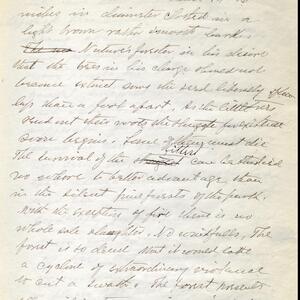 miles in diameter clothed in a
light brown rather smooth bark.
Nature's forester in his desire
that the trees in his charge should not
become extinct sows the seed liberally
less than a foot apart. As the little trees
send out their roots the struggle for existence
soon begins. Some of them must die
The survival of the fittest can be studied
no where to better advantage than
in the silent pine forests of the park.
With the exception of fire there is no
whole sale slaughter. No windfalls. The
forest is so dense that it would take
a cyclone of extraordinary violence
to cut a swath. The forest presents